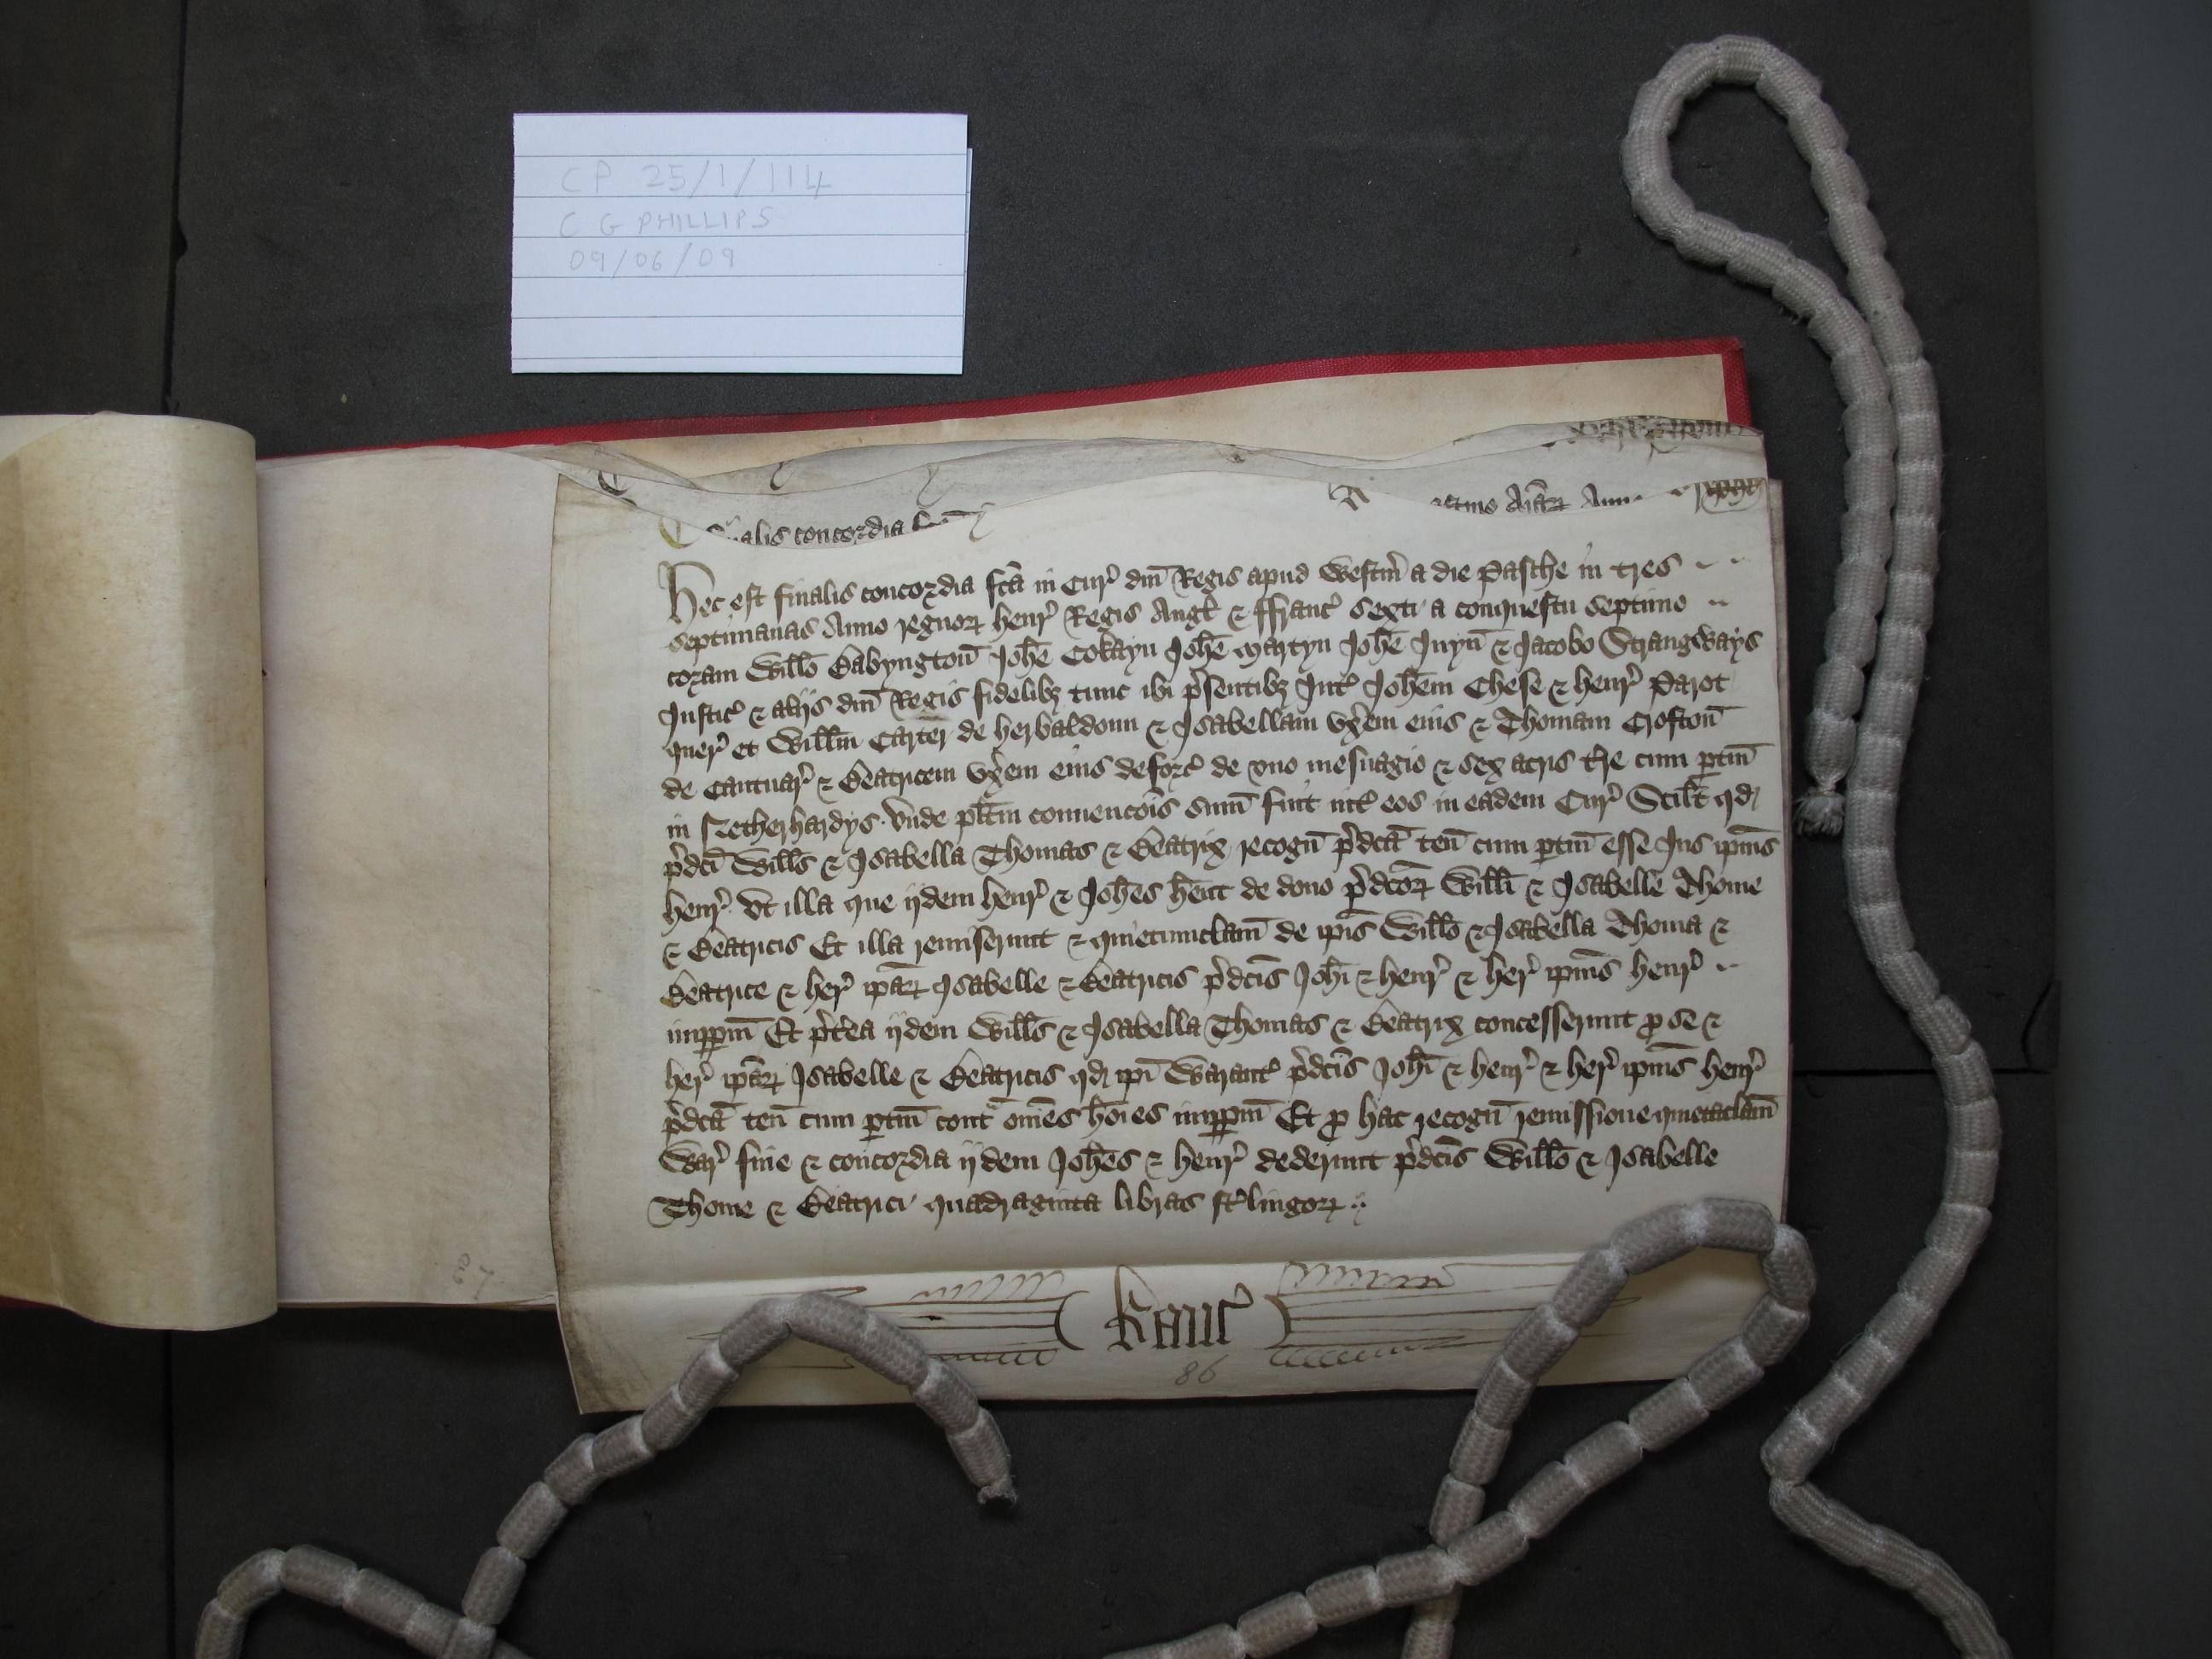 CP 25/1/114
C G PHILLIPS
09/06/09
alis concordia
Anno
Hec est finalis concordia fc̄a in Cur̉ dn̄i Regis apud Westm̉ a die Pasche in tres
septimanas Anno regnoꝝ Henr̉ Regis Angl̉ ⁊ Ffranc̉ sexti a conquestu septimo
coram Willō Babyngton̄ Joh̄e Cokayn Joh̄e Martyn Joh̄e Juyn̄ ⁊ Jacobo Strangways
Justic̉ ⁊ alijs dn̄i Regis fidelibꝫ tunc ibi p̉sentibꝫ Int̉ Joh̄em Chese ⁊ Henr̉ Parot
quer̉ et Willm̄ Carter̄ de Herbaldoun ⁊ Isabellam vx̉em eius ⁊ Thomam Crofton̄
de Cantuar̉ ⁊ Beatricem vx̉em eius deforc̉ de vno mesuagio ⁊ sex acris tr̉e cum ptin̄
in Netherhardys Vnde pl̄itm conuenc̄ois sum̄ fuit int̉ eos in eadem Cur̉ Scilt̉ qd̛
p̉dc̄i Will̄s ⁊ Isabella Thomas ⁊ Beatrix recogn̄ p̉dc̄a ten̄ cum ptin̄ esse Ius ip̄ius
Henr̉ vt illa que ijdem Henr̉ ⁊ Joh̄es h̄ent de dono p̉dc̄oꝝ Will̄i ⁊ Isabelle Thome
⁊ Beatricis Et illa remiserunt ⁊ quietumclam̄ de ip̄is Willō ⁊ Isabella Thoma ⁊
Beatrice ⁊ her̉ ip̄aꝝ Isabelle ⁊ Beatricis p̉dc̄is Joh̄i ⁊ Henr̉ ⁊ her̉ ip̄ius Henr̉
imppm̄ Et p̉t̉ea ijdem Will̄s ⁊ Isabella Thomas ⁊ Beatrix concesserunt ꝓ se ⁊
her̉ ip̄aꝝ Isabelle ⁊ Beatricis qd̛ ip̄i Warant̉ p̉dc̄is Joh̄i ⁊ Henr̉ ⁊ her̉ ip̄ius Henr̉
p̉dc̄a ten̄ cum ptin̄ cont̉ om̄es ho̅i̅es imppm̄ Et ꝓ hac recogn̄ remissione quietaclam̄
War̉ fine ⁊ concordia ijdem Joh̄es ⁊ Henr̉ dederunt p̉dc̄is Willō ⁊ Isabelle
Thome ⁊ Beatrici quadraginta libras st̉lingoꝝ
Kanc̉
86